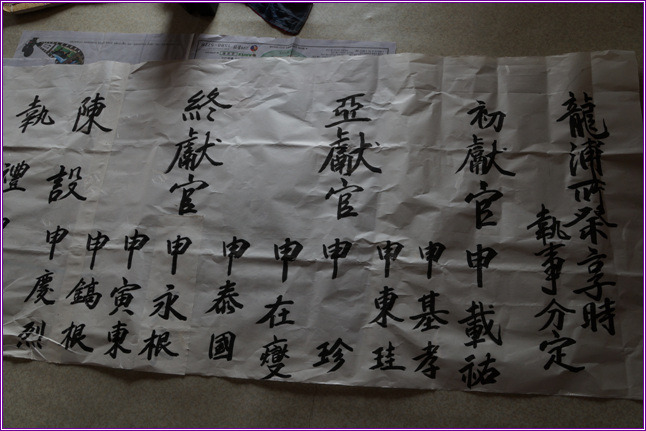 龍浦所祭享時
執事分定
初獻官 申載祐
申基孝
申東珪
亞獻官 申 珍
申在燮
申泰國
終獻官 申永根
申寅東
陳設 申鎬根
申慶烈
執禮